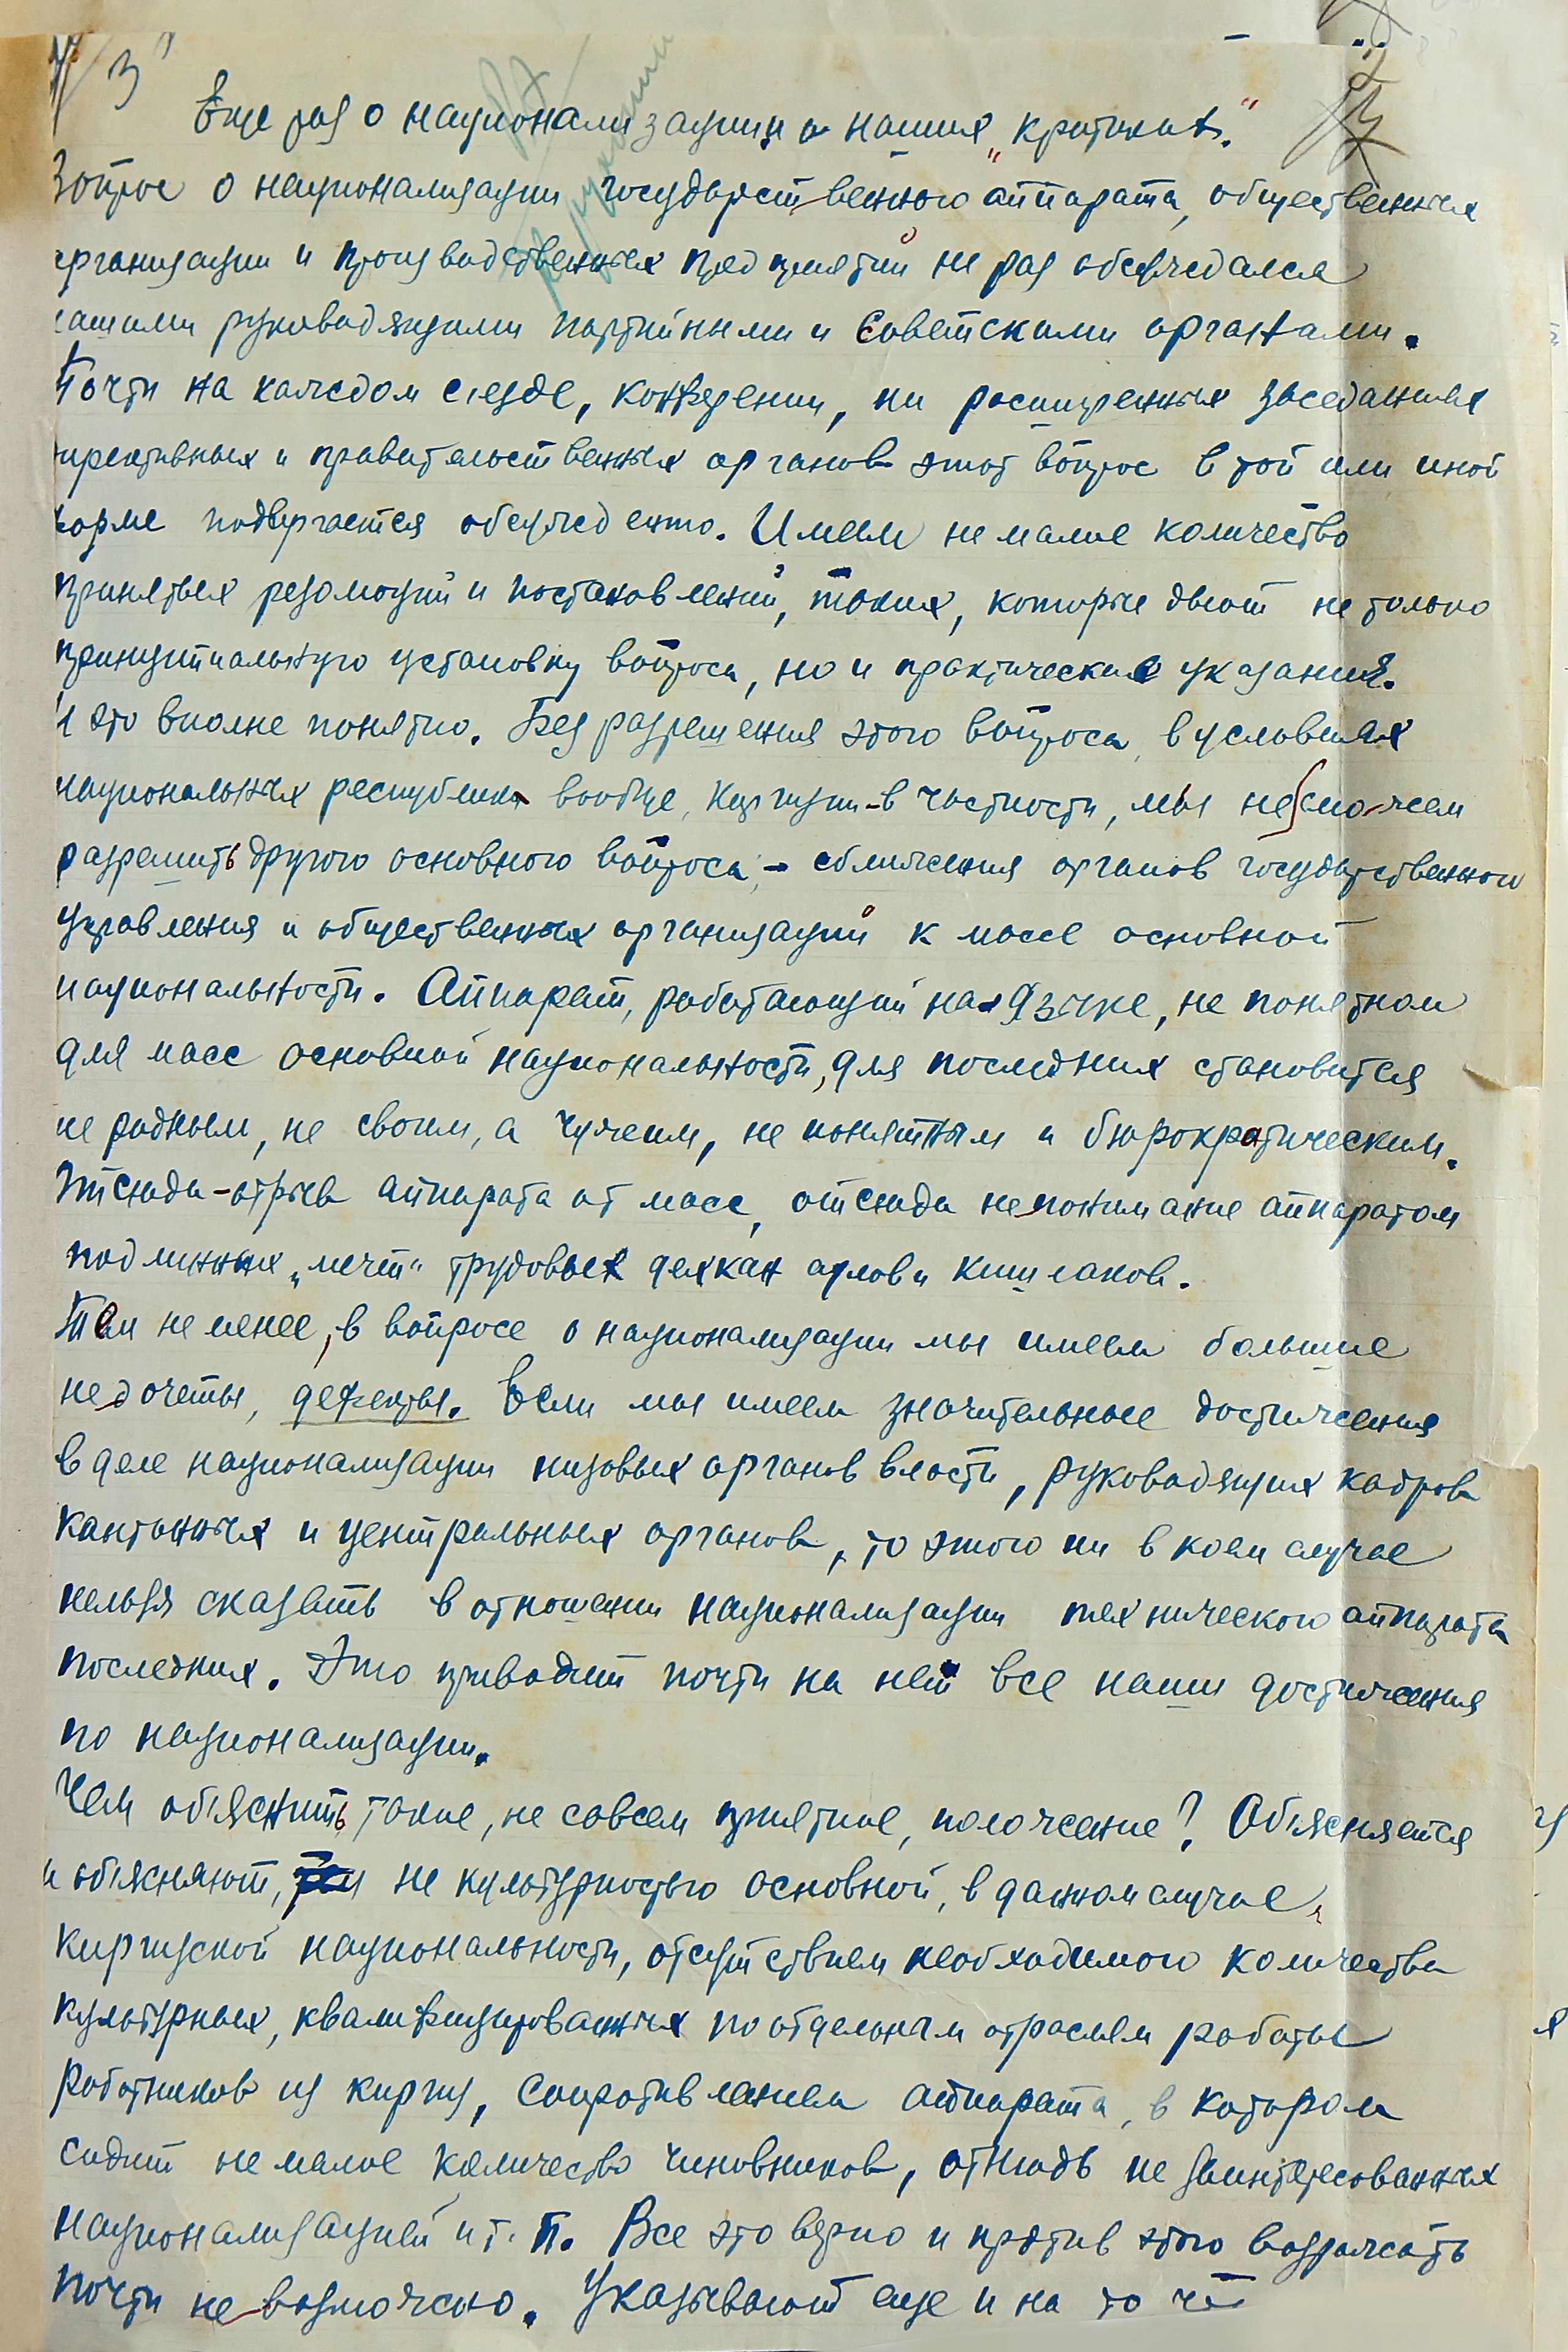 3
Еще раз о национализации и наших „критиках."
Вопрос о национализации государственного аппарата, общественных
организации и производственных предприятий не раз обсуждался
нашими руководящими партийными и советскими органами.
Почти на каждом с'езде, конференции, на расширенных заседаниях
директивных и правительственных органов этот вопрос в той или иной
форме подвергается обсуждению. Имеем не малое количество
принятых резолюций и постановлений, таких, которые дают не только
принципиальную установку вопроса, но и практические указания.
И это вполне понятно. Без разрешения этого вопроса, в условиях
национальных республик вообще, Киргизии-в частности, мы не сможем
разрешить другого основного вопроса,- сближения органов государственного
управления и общественных организаций к массе основной
национальности. Аппарат, работающий на языке, не понятном
для масс основной национальности, для последних становится
не родным, не своим, а чужим, не понятным и бюрократическим.
Отсюда-отрыв аппарата от масс, отсюда непонимание аппаратом
подлинных „мечт" трудовых дехкан аулов и кишлаков.
Тем не менее, в вопросе о национализации мы имеем большие
недочеты, дефекты. Если мы имеем значительные достижения
в деле национализации низовых органов власти, руководящих кадров
кантонных и центральных органов, то этого ни в коем случае
нельзя сказать в отношении национализации технического аппарата
последних. Это приводит почти на нет все наши достижения
по национализации.
Чем об'яснить такое, не совсем приятное, положение? Об'ясняется
и об'ясняют, не культурностью основной, в данном случае,
киргизской национальности, отсутствием необходимого количества
культурных, квалифицированных по отдельным отраслям работы
работников из киргиз, сопротивлением аппарата, в котором
сидит не малое количество чиновников, отнюдь не заинтересованных
национализацией и т. п. Все это верно и против этого возражать
почти не возможно. Указывают еще и на то что